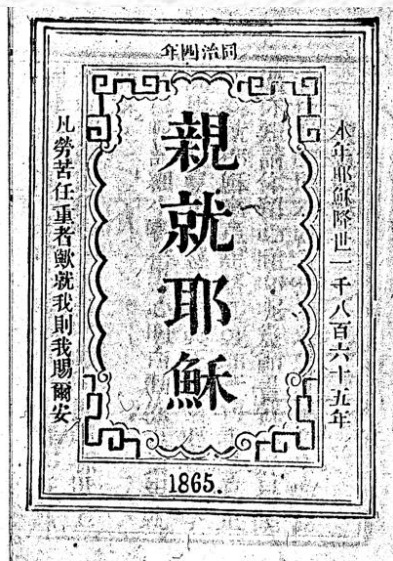 同治四年
本年耶穌降世一千八百六十五年
親就耶穌
凡勞苦任重者歟就我則我賜爾安
1865.